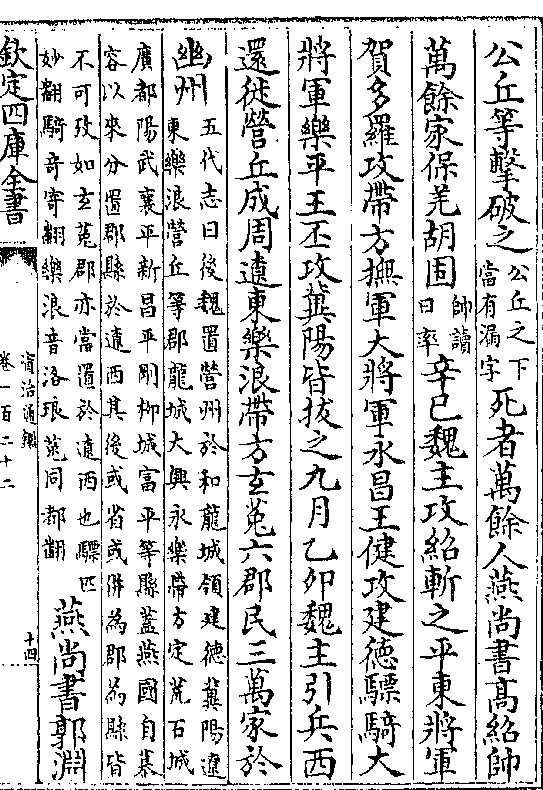 公丘等擊破之公丘之下當有漏字死者萬餘人燕尚書髙紹帥
萬餘家保羌胡固帥讀曰率辛巳魏主攻紹斬之平東將軍
賀多羅攻帶方撫軍大將軍永昌王健攻建徳驃騎大
將軍樂平王丕攻冀陽皆拔之九月乙卯魏主引兵西
還徙營丘成周遼東樂浪帶方玄菟六郡民三萬家於
幽州五代志曰後魏置營州於和龍城領建徳冀陽遼
東樂浪營丘等郡龍城大興永樂帶方定荒石城
廣都陽武襄平新昌平剛柳城富平等縣蓋燕國自慕
容以來分置郡縣於遼西其後或省或併為郡為縣皆
不可攷如玄菟郡亦當置於遼西也驃匹
妙翻騎竒寄翻樂浪音洛琅菟同都翻燕尚書郭淵
欽定四庫全書
資治通鑑
卷一百二十二
十四